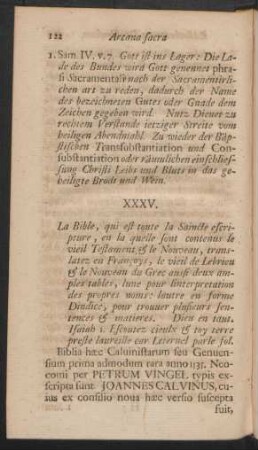 122 Arcana sacra
1. Sam. IV. v. 7. Gott ist ins Lager: Die La-
de des Bundes wird Gott genennet phra-
si Sacramentali nach der Sacramentirli-
chen art zu reden, dadurch der Name
des bezeichneten Gutes oder Gnade dem
Zeichen gegeben wird. Nutz Dienet zu
rechtem Verstande ietziger Streite vom
heiligen Abendmahl. Zu wieder der Bäp-
stischen Transsubstantiation und Con-
substantiation oder räumlichen einschlies-
sung Christi Leibs und Bluts in das ge-
heiligte Brodt und Wein.
XXXV.
La Bible, qui est toute la Saincte escri-
pture, en la quelle sont contenus le
vieil Testament & le Nouveau, trans-
latez en Françoys, le vieil de Lebrieu
& le Nouveau du Grec aussi deux am-
ples tables, lune pour linterpretation
des propres noms: lautre en forme
Dindice, pour trouver plusieurs sen-
tences & matieres. Dieu en tous.
Isaiah 1. Escoutez cieulx & toy terre
preste laureille car Leternel parle fol.
Biblia hæc Calvinistarum seu Genuen-
sium prima admodum rara anno 1535. Neo-
comi per PETRUM VINGEL typis ex-
scripta sunt. JOANNES CALVINUS, cu-
ius ex consilio nous hæc versio suscepta
fuit,